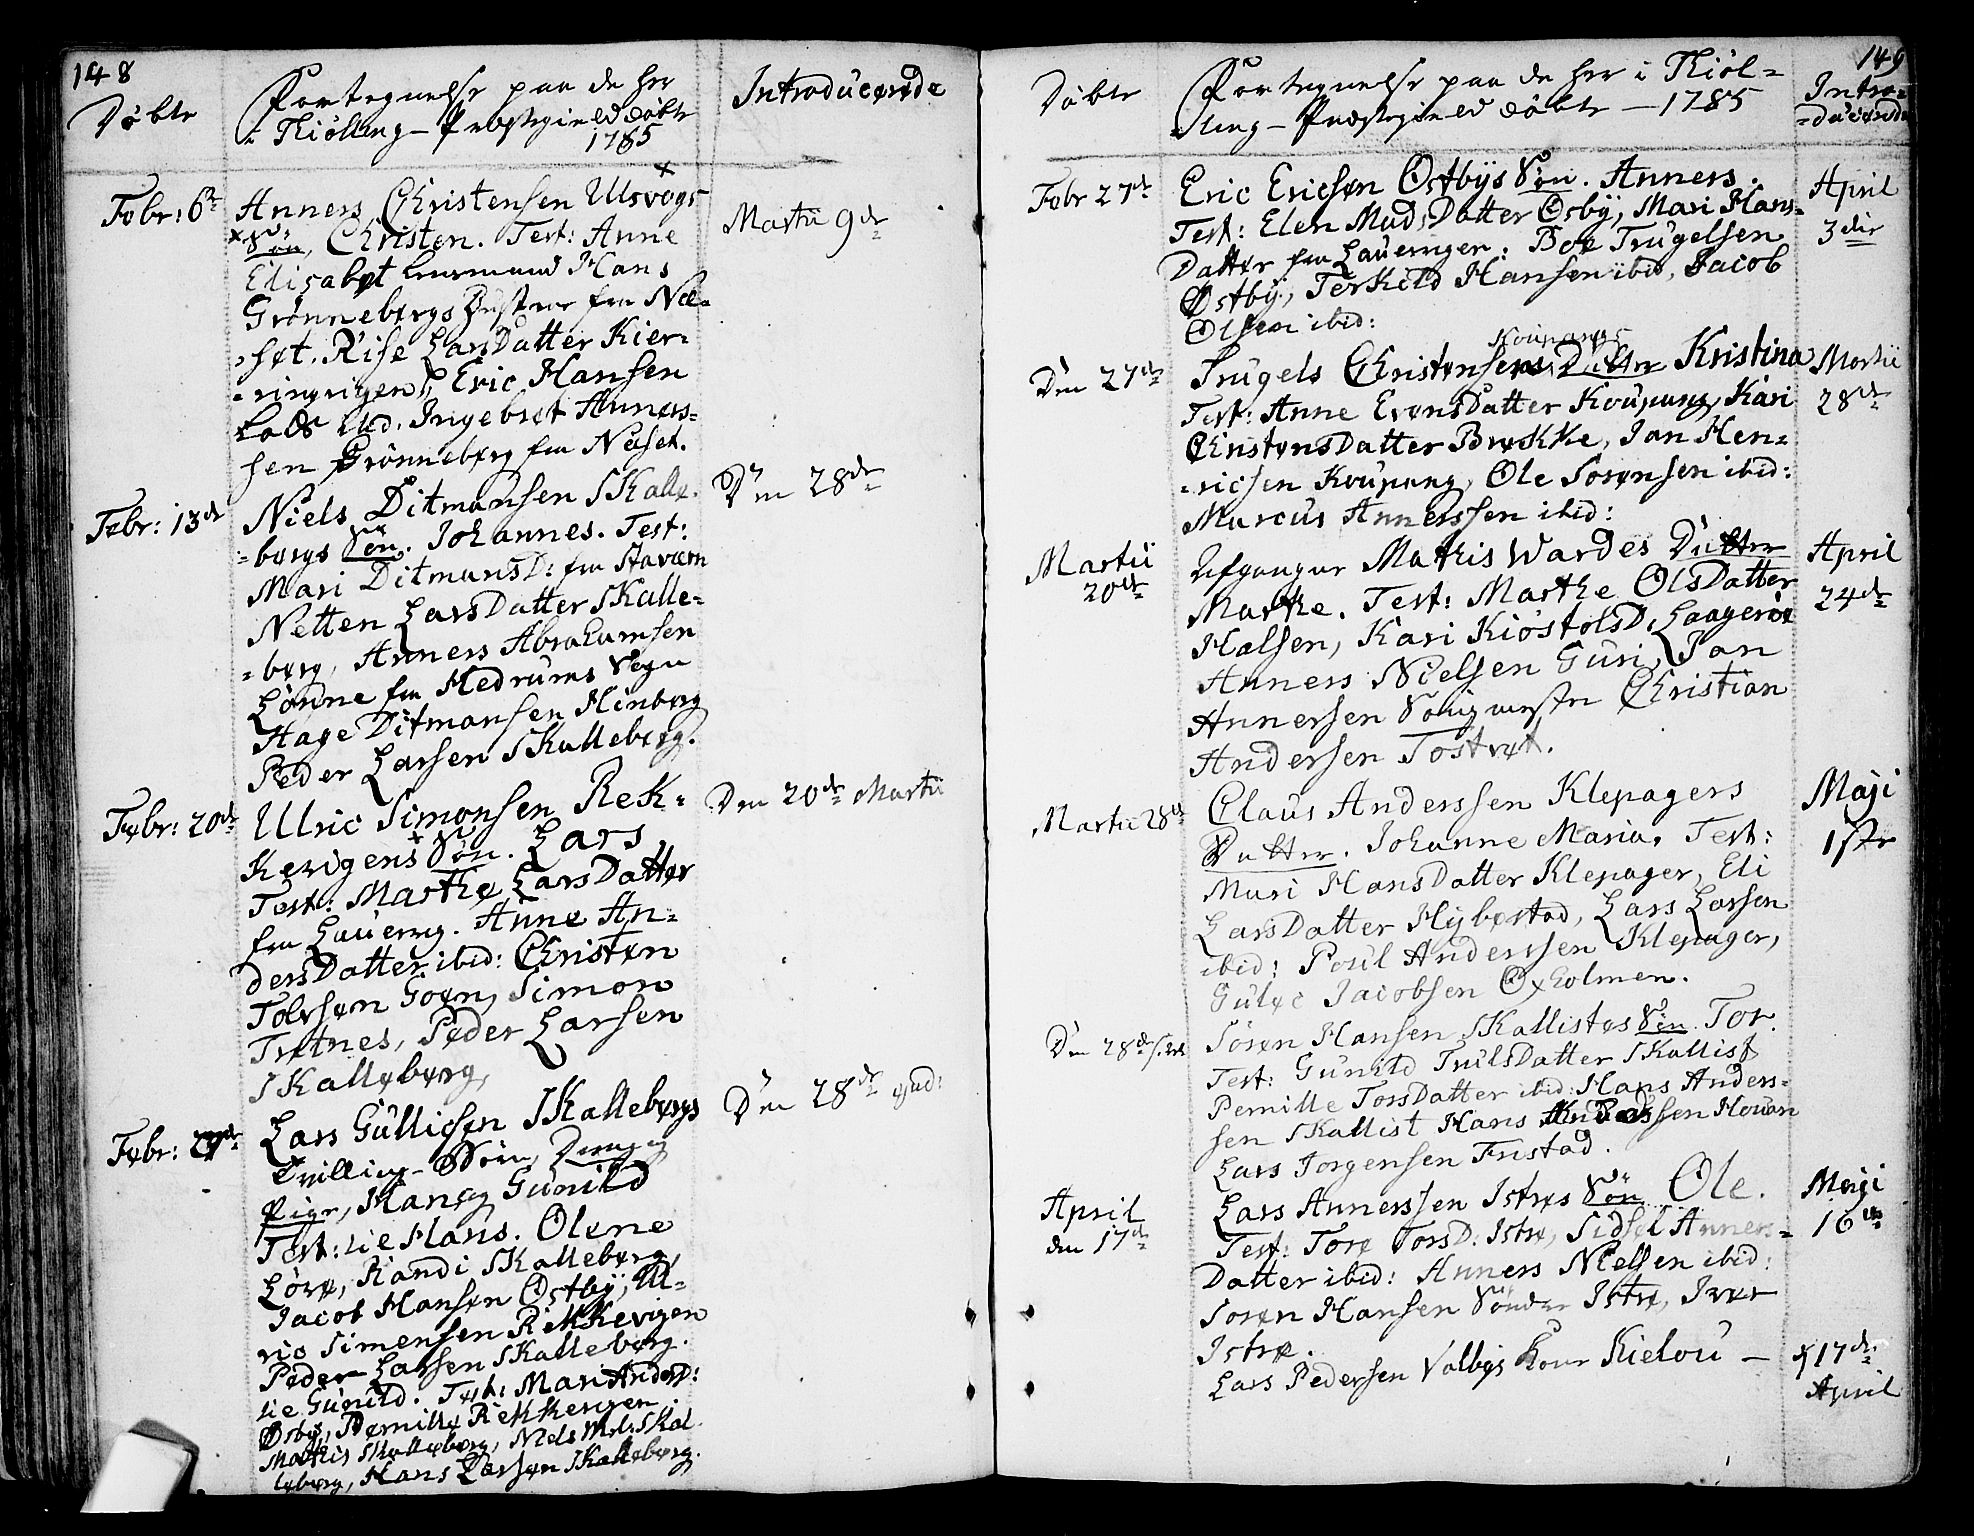 148
Døbte
Fortegnelse paa de her
i Kiølling - Præstegield døbte
1785
Introducerede
Febr: 6te
Anners Christensen Ulsvogs
Søn, Christen. Test: Anne
Elisabet Hans
Grønnebergs Hustrue fra Næ-
-set. Rise LarsDatter Kier-
-ringvigen, Eric Hansen
Lods ibid. Ingebret Anners-
sen Grønneberg fra Næset.
Martii 9de
Febr: 13de
Niels Ditmansen SKalle-
-bergs Søn. Johannes. Test:
Mari DitmansD: fra Staværn
Netten LarsDatter SKalle-
-berg, Anners Abrahamsen
Lønne fra Hedrums Sogn
Hage Ditmansen Hinberg
Peder Larsen SKalleberg.
Den 28de
Febr: 20de
Ulric Simonsen ReK-
Kevigens Søn. Lars
Test: Marthe LarsDatter
fra Lauerveg. Anne An-
dersDatter ibid: Christen
Tolvsen Goen, Simon
Trætnes, Peder Larsen
SKalleberg,
Den 20de Martii
Febr: 27de
Lars Gullicsen SKallebergs
Tvilling- Børn, Dreng og
Pige, Hans og Gunild
Test: til Hans. Olene
Løve, Randi SKalleberg,
Jacob Hansen Østby, Ul-
ric Simensen ReKKevigen
Peder Larsen SKalleberg.
til Gunild. Test: Mari AndersD:
Østby, Pernille ReKKevigen,
Mathis SKalleberg, Niels SKal-
leberg, Hans Larsen SKalleberg.
Den 28de
149
Døbte
Fortegnelse paa de her i Kiøl-
-ling - Præstegield døbte - 1785
Intro-
-ducerede
Febr 27de
Eric Ericsen Østbys Søn. Anners.
Test: Elen MadsDatter Østby, Mari Hans-
Datter fra Lauervigen. Boe Trugelsen
Østby, Terkild Hansen ibid, Jacob
Olsen ibid:
April
3die
Den 27de
Koupangs
Trugels Christensens Datter Kristina
Test: Anne EvensDatter Koupang, Kari
ChristensDatter BreKKe, Jan Hen-
-ricsen Koupang, Ole Sorensen ibid:
Marcus Annerssen ibid:
Martii
28de
Martii
20de
Afganger Mathis Wardes Datter
Marthe. Test: Marthe OlsDatter
Halsen, Kari KiøstolsD, Laagerøe
Anners Nielsen Guri, Jan
Annersen Christian
Andersen Tostvet.
April
24de
Martii 28de
Claus Anderssen Klepagers
Datter. Johanne Maria. Test:
Mari HansDatter Klepager, Eli
LarsDatter Hybestad, Lars Larsen
ibid: Poul Anderssen Klepager,
Gulec Jacobsen Oxholmen.
Maji
1ste
Den 28de
Søren Hansen SKallistes Søn. Tor.
Test: Gunild TrulsDatter SKallist
Pernille TorsDatter ibid: Hans Anders-
sen SKallist Hans Anderssen Houan
Lars Jorgensen Fristad.
April
den 17de
Lars Annerssen Istres Søn Ole.
Test: Tore TorsD: Istre, Sidsel Anners-
Datter ibid: Anners Nielsen ibid:
Soren Hansen Sønder Istre, Iver
Istre.
Maji
16de
Lars Pedersen Valbys Kone Kielou -
17de
April